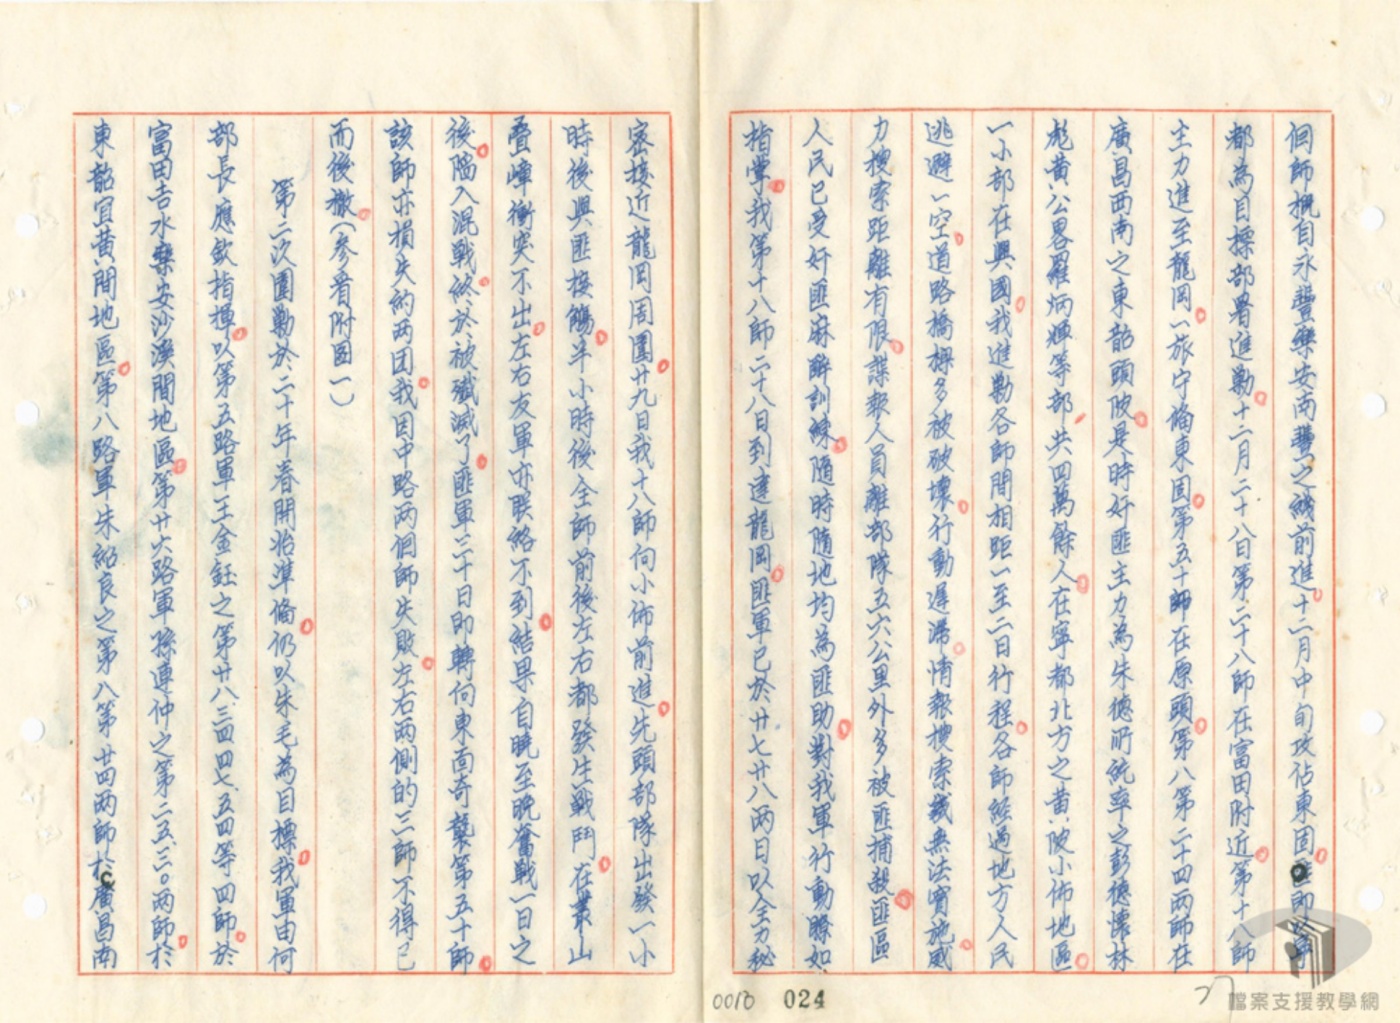 個師概自永豐樂安南豐之綫前進十二月中旬攻佔東固
都為目標部署進勦十二月二十八日第二十八師在富田附近第十八師
主力進至龍岡一旅守備東固第五十師在原頭第八第二十四兩師在
廣昌西南之東韶頭陂是時奸匪主力為朱德所統率之彭德懷林
彪黃公畧羅炳輝等部共四萬餘人在寧都北方之黃陂小佈地區
一小部在興國我進勦各師間相距一至二日行程各師經過地方人民
逃避一空道路橋樑多被破壞行動遲滯情報搜索幾無法實施威
力搜索距離有限諜報人員離部隊五六公里外多被匪捕殺匪區
人民已受奸匪麻醉訓練隨時隨地均為匪助對我軍行動瞭如
指掌我第十八師二十八日到達龍岡匪軍已於廿七廿八兩日以全力秘
密接近龍岡周圍廿九日我十八師向小佈前進先頭部隊出發一小
時後與匪接觸半小時後全師前後左右都發生戰鬥在叢山
疊嶂衝突不出左右友軍亦联絡不到結果自曉至晚奮戰一日之
後陷入混戰終於被殲滅了匪軍三十日即轉向東面奇襲第五十師
該師亦損失約两团我因中路两個師失敗左右两側的三師不得已
而後撤（參看附图一）
第二次圍勦於二十年春開始準備仍以朱毛為目標我軍由何
部長應欽指揮以第五路軍王金鈺之第廿八、三四四七、五四等四師於
富田吉水樂安沙溪間地區第廿六路軍孫連仲之第二五、三〇两師於
東韶宜黃間地區第八路軍朱紹良之第八第廿四两師於廣昌南
0010 024
檔案支援教學網